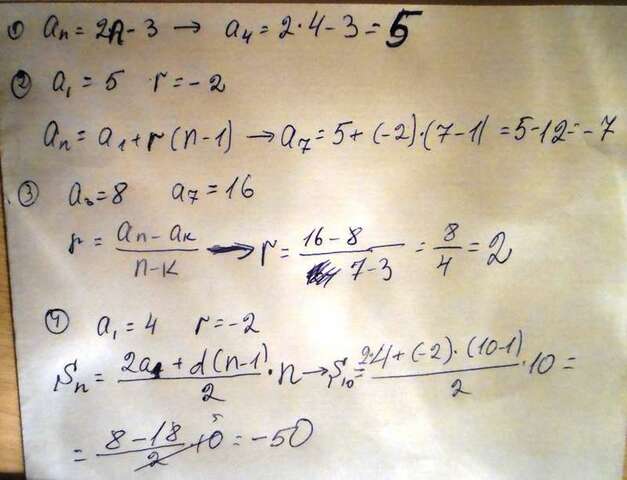 ① aₙ = 2n - 3 → a₄ = 2·4 - 3 = 5
② a₁ = 5 r = -2
aₙ = a₁ + r(n-1) → a₇ = 5 + (-2)·(7-1) = 5-12 = -7
③ a₃ = 8 a₇ = 16
r = (aₙ - aₖ)/(n-k) → r = (16-8)/(7-3) = 8/4 = 2
④ a₁ = 4 r = -2
Sₙ = (2a₁ + d(n-1))/2 · n → S₁₀ = (2·4 + (-2)·(10-1))/2 · 10 =
= (8-18)/2 · 10 5 = -50